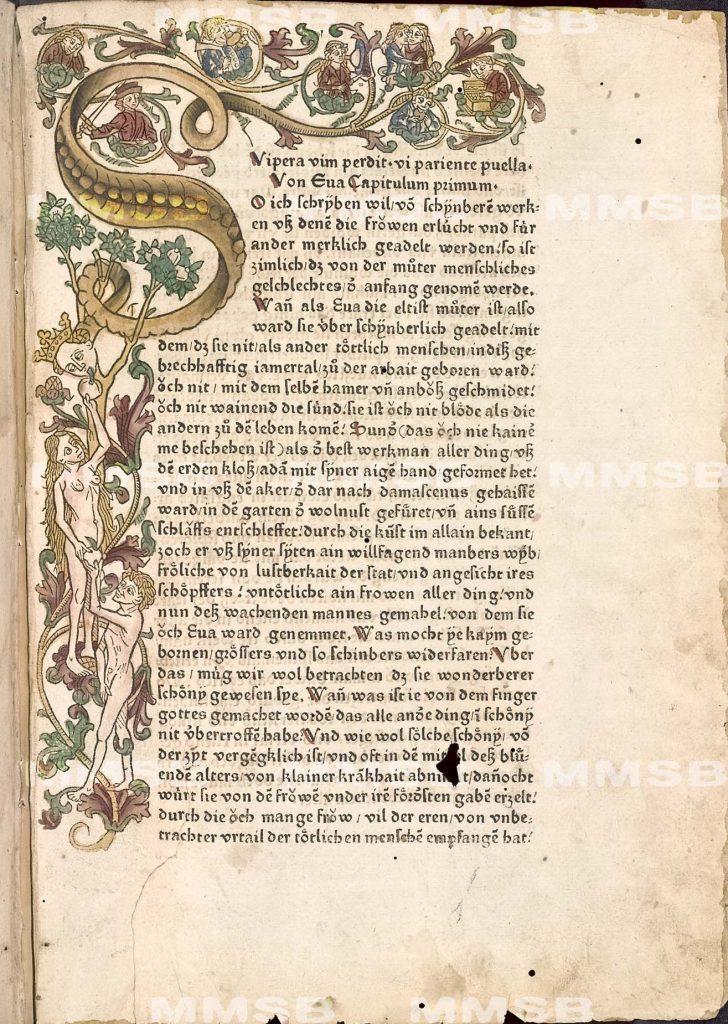 Vipera vim perdit. vi pariente puella.
Von Eua Capitulum primum.
SO ich schrÿben wil/võ schÿnberẽ werk=
en vß denẽ die frőwen erlúcht vnd fúr
ander merklich geadelt werden/so ist
zimlich/dz von der můter menschliches
geschlechtes/ð anfang genomẽ werde.
Wañ als Eua die eltist můter ist/also
ward sie úber schÿnberlich geadelt/mit
dem/dz sie nit/als ander tőttlich menschen/indiß ge=
brechhafftig iamertal/zů der arbait geboren ward/
ŏch nit/mit dem selbẽ hamer vñ anbŏß geschmidet/
ŏch nit wainend die súnd/sie ist ŏch nit blőde als die
andern zů dẽ leben komẽ/Sunð(das ŏch nie kainẽ
me beschehen ist)als ð best werkman aller ding/vß
dẽ erden kloß/adã mit sÿner aigẽ hand/geformet het/
vnd in vß dẽ aker/ð dar nach damascenus gehaissẽ
ward/in dẽ garten ð wolnust gefúret/vñ ains sússẽ
schlåffs entschleffet/durch die kúst im allain bekant/
zoch er vß sÿner sÿten ain willsagend manbers wÿb/
frőliche von lustberkait der stat/vnd angesicht ires
schőpffers/vntőtliche ain frowen aller ding/vnd
nun deß wachenden mannes gemahel/von dem sie
ŏch Eua ward genemmet. Was mocht ÿe kaÿm ge=
bornen/grőssers vnd so schinbers widerfaren/Vber
das/múg wir wol betrachten dz sie wonderberer
schőnÿ gewesen sÿe. Wañ/was ist ie von dem finger
gottes gemachet wordẽ/das alle anðe ding/ĩ schőnÿ
nit úbertroffẽ habe/Vnd wie wol sőlche schőnÿ/võ
der zÿt vergẽgklich ist/vnd oft in dẽ deß blů=
endẽ alters/von klainer krãkhait /dañocht
wúrt sie von dẽ frőwẽ vnder irẽ főrősten gabẽ erzelt/
durch die ŏch mange frŏw/vil der eren/von vnbe=
trachter vrtail der tőtlichen menschẽ empfangẽ hat/
MMSB